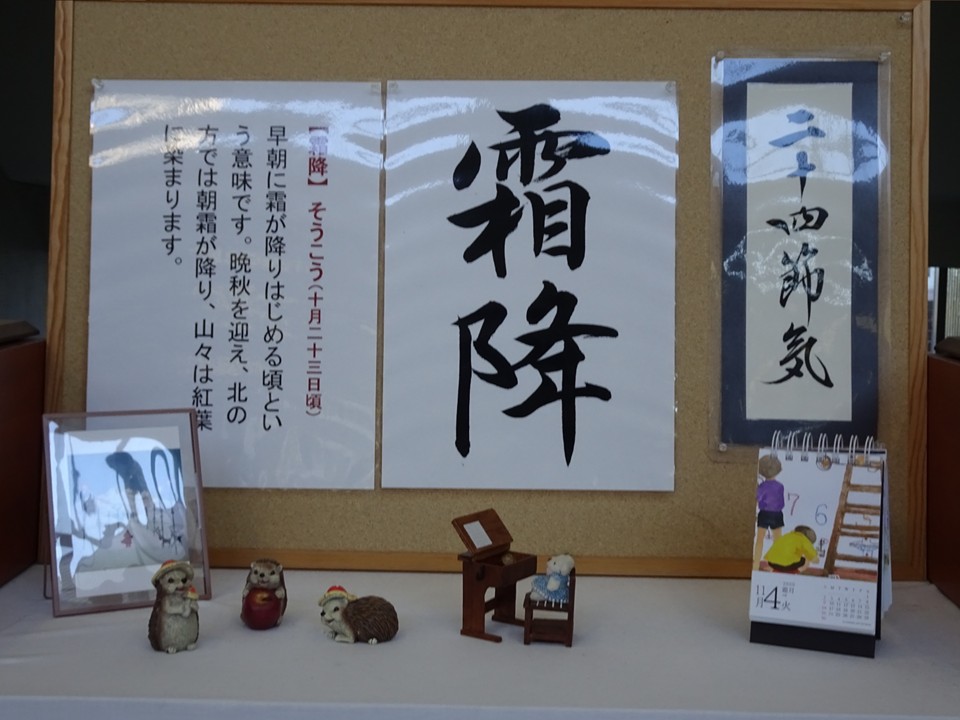 二十四節気
霜降
【霜降】 そうこう(十月二十三日頃)
早朝に霜が降りはじめる頃とい
う意味です。晩秋を迎え、北の
方では朝霜が降り、山々は紅葉
に染まります。
7
6
11月
4
火